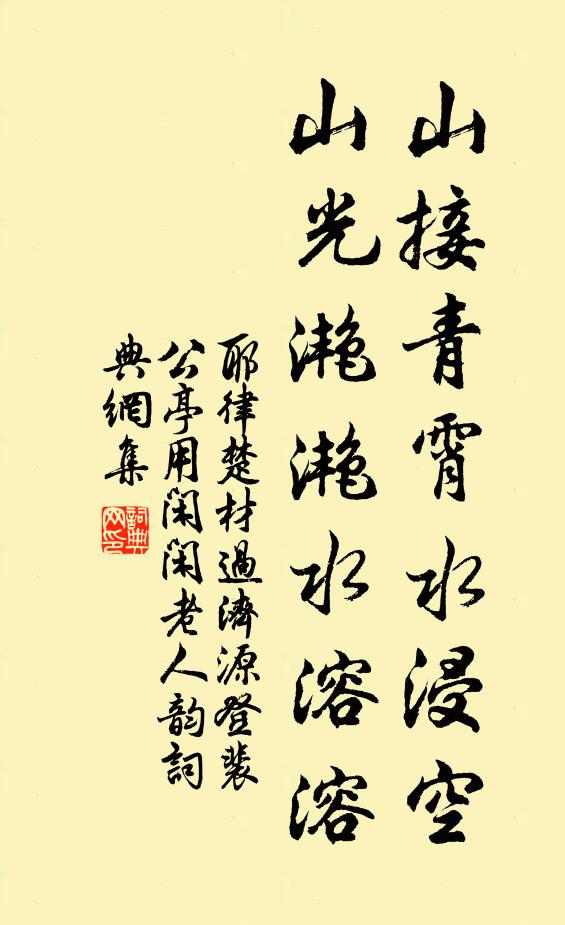 山接青霄水浸空
山光灔灔水溶溶
耶律楚材過濟源登裴
公亭用閑閑老人韵詞
典網集
詞典网印